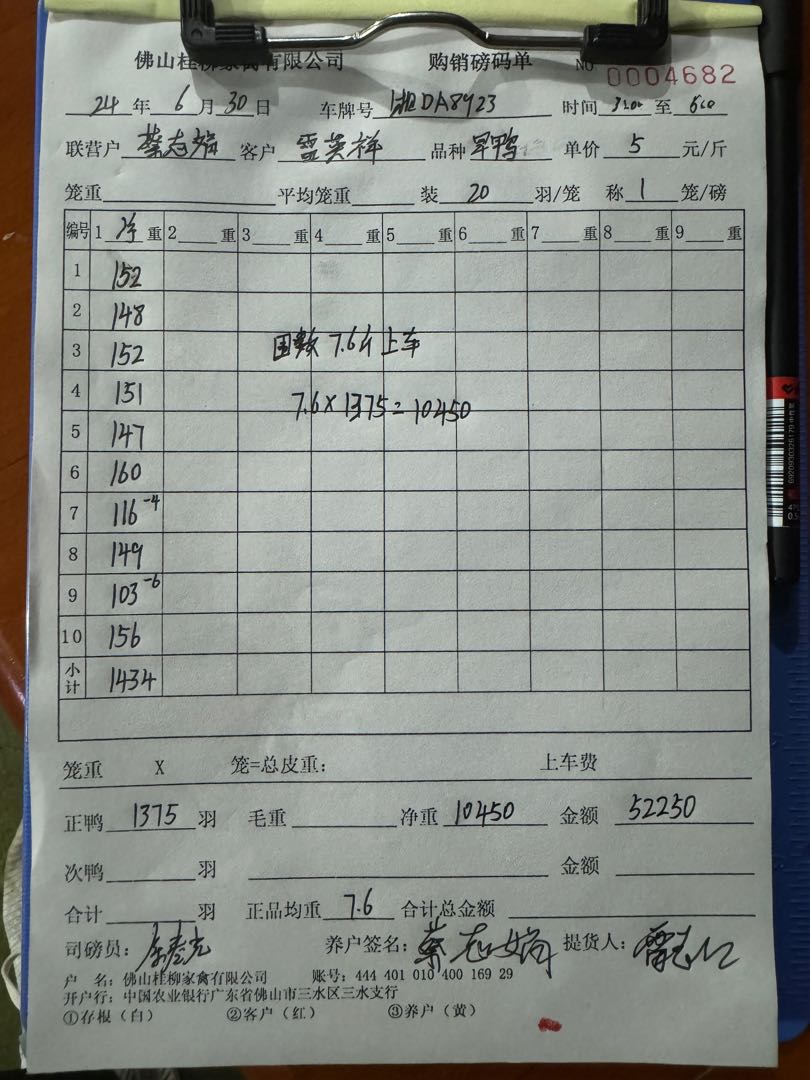 佛山桂柳家禽有限公司 购销磅码单 NO 0004682
24 年 6 月 30 日 车牌号 湘DA8923 时间 至
联营户 蔡志娟 客户 雷英祥 品种 旱鸭 单价 5 元/斤
笼重 平均笼重 装 20 羽/笼 称 1 笼/磅
编号 1 净 重 2 重 3 重 4 重 5 重 6 重 7 重 8 重 9 重
1 152
2 148
3 152 7.6斤上车
4 151 7.6×1375=10450
5 147
6 160
7 116 -4
8 149
9 103 -6
10 156
小计 1434
笼重 X 笼=总皮重: 上车费
正鸭 1375 羽 毛重 净重 10450 金额 52250
次鸭 羽 金额
合计 羽 正品均重 7.6 合计总金额
司磅员: 养户签名: 蔡志娟 提货人:
户 名: 佛山桂柳家禽有限公司 账号: 444 401 010 400 169 29
开户行: 中国农业银行广东省佛山市三水区三水支行
①存根（白） ②客户（红） ③养户（黄）
6920930326179